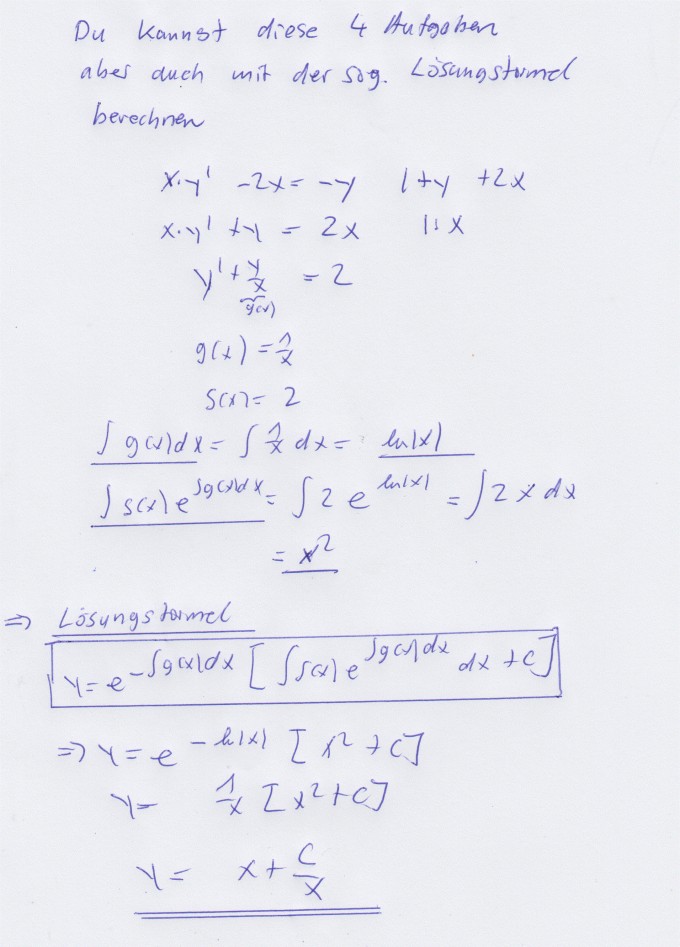 Du kannst diese 4 Aufgaben
aber auch mit der sog. Lösungsformel
berechnen
x·y' -2x = -y |+y +2x
x·y' +y = 2x |:x
y' + y/x = 2
g(x)
g(x) = 1/x
s(x) = 2
∫g(x)dx = ∫ 1/x dx = ln|x|
∫s(x) e^∫g(x)dx = ∫ 2 e^ln|x| = ∫2x dx
= x²
⇒ Lösungsformel
y = e^-∫g(x)dx [ ∫s(x) e^∫g(x)dx dx + C]
⇒ y = e^-ln|x| [x² + C]
y = 1/x [x² + C]
y = x + C/x